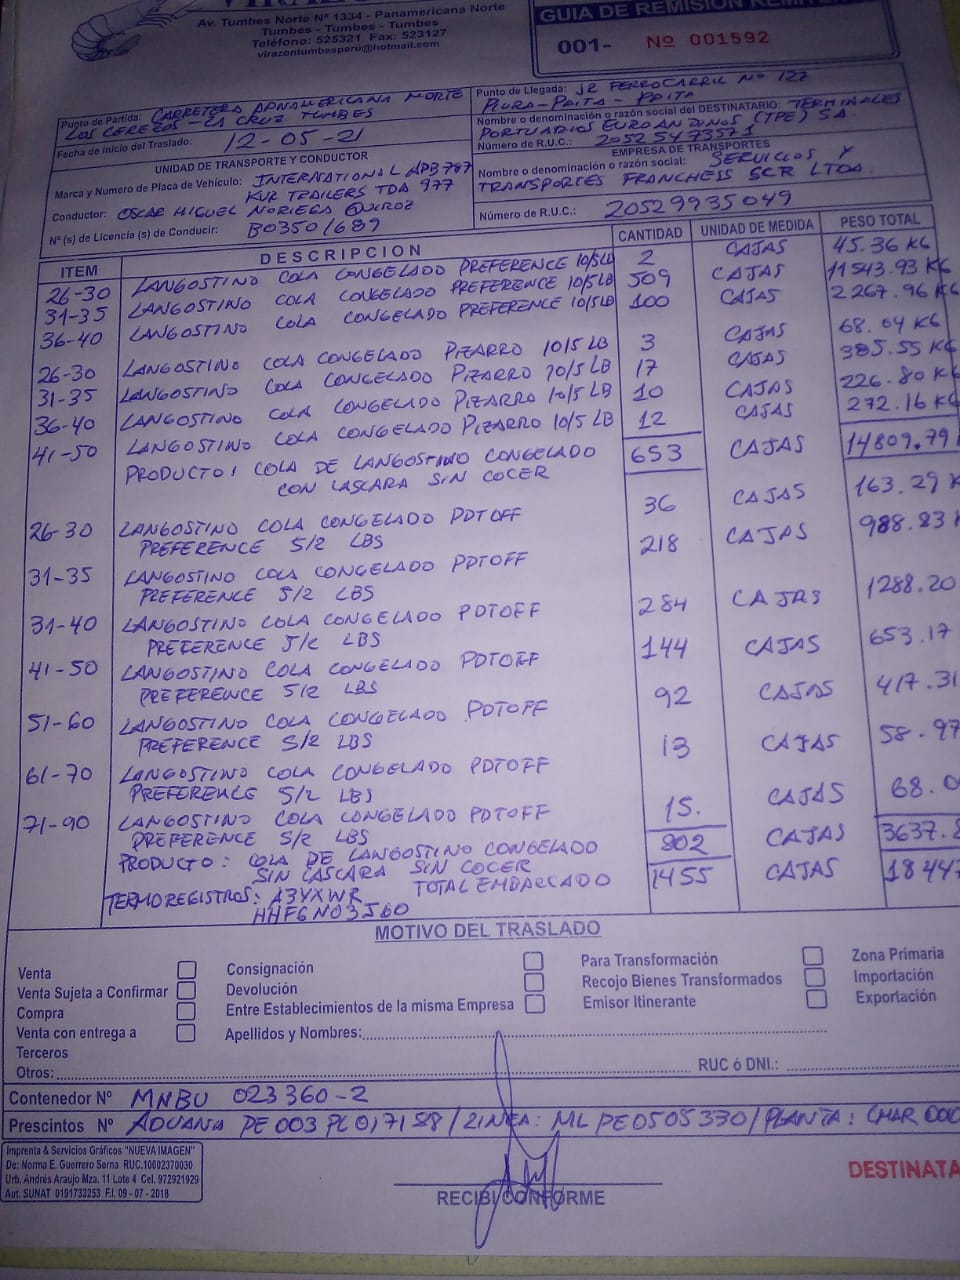 Av. Tumbes Norte Nº 1334 - Panamericana Norte
Tumbes - Tumbes - Tumbes
Teléfono: 525321 Fax: 523127
virazontumbesperú@hotmail.com
GUIA DE REMISION
001- Nº 001592
Punto de Partida: CARRETERA PANAMERICANA NORTE
LOS CEREZOS - LA CRUZ TUMBES
Fecha de Inicio del Traslado: 12-05-21
Punto de Llegada: JR FERROCARRIL Nº 127
PIURA - PAITA - PAITA
Nombre o denominación o razón social del DESTINATARIO: TERMINALES
PORTUARIOS EUROANDINOS (TPE) SA
Número de R.U.C.: 20525473571
UNIDAD DE TRANSPORTE Y CONDUCTOR
Marca y Numero de Placa de Vehículo: INTERNATIONAL APB787
KUR TRAILERS TDA 977
Conductor: OSCAR MIGUEL NORIEGA QUIROZ
Nº (s) de Licencia (s) de Conducir: B03501689
EMPRESA DE TRANSPORTES
Nombre o denominación o razón social: SERVICIOS Y
TRANSPORTES FRANCHESS SCR LTDA.
Número de R.U.C.: 20529935049
ITEM DESCRIPCION CANTIDAD UNIDAD DE MEDIDA PESO TOTAL
26-30 LANGOSTINO COLA CONGELADO PREFERENCE 10/5LB 2 CAJAS 45.36 KG
31-35 LANGOSTINO COLA CONGELADO PREFERENCE 10/5LB 509 CAJAS 11543.93 KG
36-40 LANGOSTINO COLA CONGELADO PREFERENCE 10/5LB 100 CAJAS 2267.96 KG
26-30 LANGOSTINO COLA CONGELADO PIZARRO 10/5 LB 3 CAJAS 68.04 KG
31-35 LANGOSTINO COLA CONGELADO PIZARRO 10/5 LB 17 CAJAS 385.55 KG
36-40 LANGOSTINO COLA CONGELADO PIZARRO 10/5 LB 10 CAJAS 226.80 KG
41-50 LANGOSTINO COLA CONGELADO PIZARRO 10/5 LB 12 CAJAS 272.16 KG
PRODUCTO: COLA DE LANGOSTINO CONGELADO 653 CAJAS 14809.79
CON CASCARA SIN COCER
26-30 LANGOSTINO COLA CONGELADO PDTOFF 36 CAJAS 163.29
PREFERENCE 5/2 LBS
31-35 LANGOSTINO COLA CONGELADO PDTOFF 218 CAJAS 988.83
PREFERENCE 5/2 LBS
31-40 LANGOSTINO COLA CONGELADO PDTOFF 284 CAJAS 1288.20
PREFERENCE 5/2 LBS
41-50 LANGOSTINO COLA CONGELADO PDTOFF 144 CAJAS 653.17
PREFERENCE 5/2 LBS
51-60 LANGOSTINO COLA CONGELADO PDTOFF 92 CAJAS 417.31
PREFERENCE 5/2 LBS
61-70 LANGOSTINO COLA CONGELADO PDTOFF 13 CAJAS 58.97
PREFERENCE 5/2 LBS
71-90 LANGOSTINO COLA CONGELADO PDTOFF 15. CAJAS 68.0
PREFERENCE 5/2 LBS
PRODUCTO: COLA DE LANGOSTINO CONGELADO 802 CAJAS 3637.8
SIN CASCARA SIN COCER
TOTAL EMBARCADO 1455 CAJAS 18447
TERMOREGISTROS: A3YXWR
HHF6N03J60
MOTIVO DEL TRASLADO
Venta Consignación Para Transformación Zona Primaria
Venta Sujeta a Confirmar Devolución Recojo Bienes Transformados Importación
Compra Entre Establecimientos de la misma Empresa Emisor Itinerante Exportación
Venta con entrega a Terceros Apellidos y Nombres:
Otros: RUC ó DNI.:
Contenedor Nº MNBU 023360-2
Prescintos Nº ADUANA PE 003 PL 017158 / LINEA: ML PE0505330 / PLANTA: CMAR 000
Imprenta & Servicios Gráficos "NUEVA IMAGEN"
De: Norma E. Guerrero Serna RUC.10002370030
Urb. Andrés Araujo Mza. 11 Lote 4 Cel. 972921929
Aut. SUNAT 0191733253 F.I. 09 - 07 - 2018
RECIBI CONFORME
DESTINATA